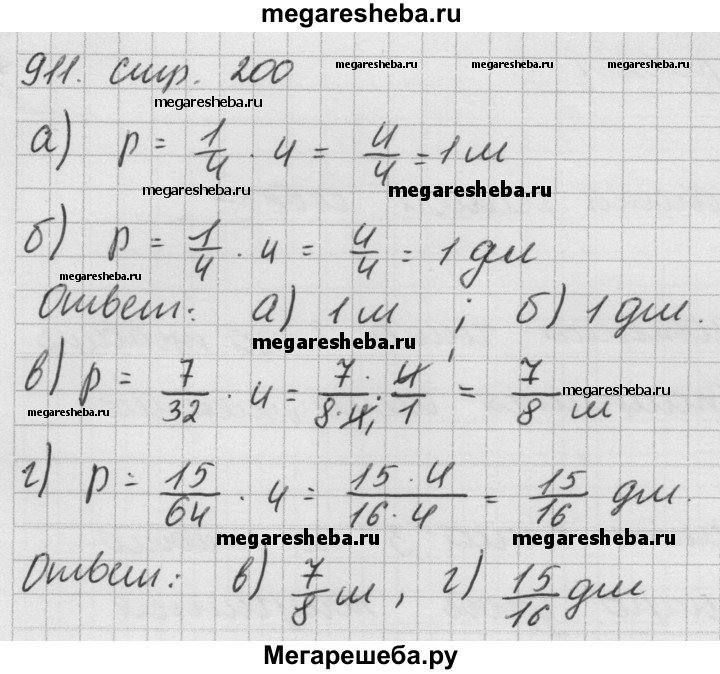 megaresheba.ru
911. стр. 200 megaresheba.ru megaresheba.ru megaresheba.ru
megaresheba.ru
а) p = 1/4 · 4 = 4/4 = 1 м
megaresheba.ru megaresheba.ru
б) p = 1/4 · 4 = 4/4 = 1 дм
megaresheba.ru
Ответ: а) 1 м ; б) 1 дм.
megaresheba.ru
в) p = 7/32 · 4 = 7/(8·4) · 4/1 = 7/8 м
megaresheba.ru megaresheba.ru
г) p = 15/64 · 4 = (15 · 4)/(16 · 4) = 15/16 дм.
megaresheba.ru megaresheba.ru
Ответ: в) 7/8 м, г) 15/16 дм
Мегарешеба.ру